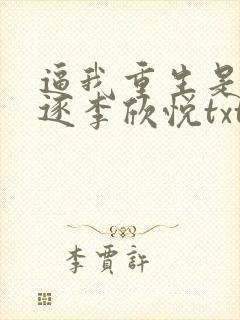 逼我重生是
逐李欣悦txt
李贾許